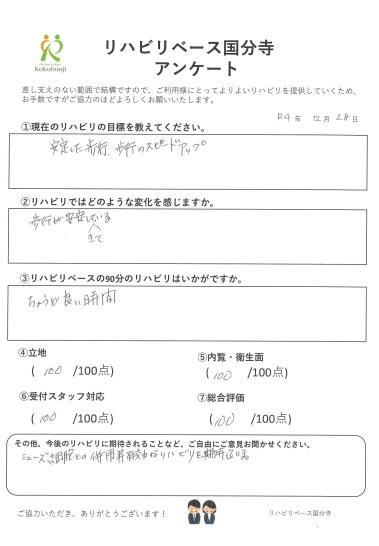 Kokubunji
リハビリベース国分寺
アンケート
差し支えのない範囲で結構ですので、ご利用様にとってよりよいリハビリを提供していくため、
お手数ですがご協力のほどよろしくお願いいたします。
R4 年 12 月 28 日
①現在のリハビリの目標を教えてください。
安定した歩行、歩行のスピードアップ
②リハビリではどのような変化を感じますか。
歩行が安定している
きて
③リハビリベースの90分のリハビリはいかがですか。
ちょうど良い時間
④立地
( 100 /100点)
⑤内覧・衛生面
( 100 /100点)
⑥受付スタッフ対応
( 100 /100点)
⑦総合評価
( 100 /100点)
その他、今後のリハビリに期待されることなど、ご自由にご意見お聞かせください。
ミューズ細胞との併用 有効なリハビリを期待している。
ご協力いただき、ありがとうございます！
リハビリベース国分寺